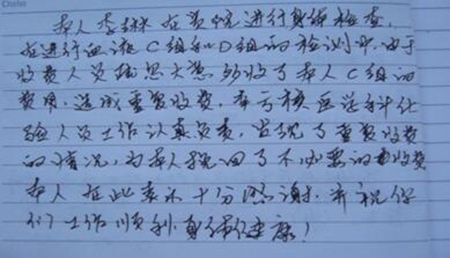 本人李林在贵院进行身体检查,
在进行血液C组和D组的检测中,由于
收费人员粗思大意,多收了本人C组的
费用,造成重复收费,幸亏核医学科化
验人员工作认真负责,发现了重复收费
的情况,为本人挽回了不必要的收费
本人在此表示十分感谢,并祝你
们工作顺利,身体健康!